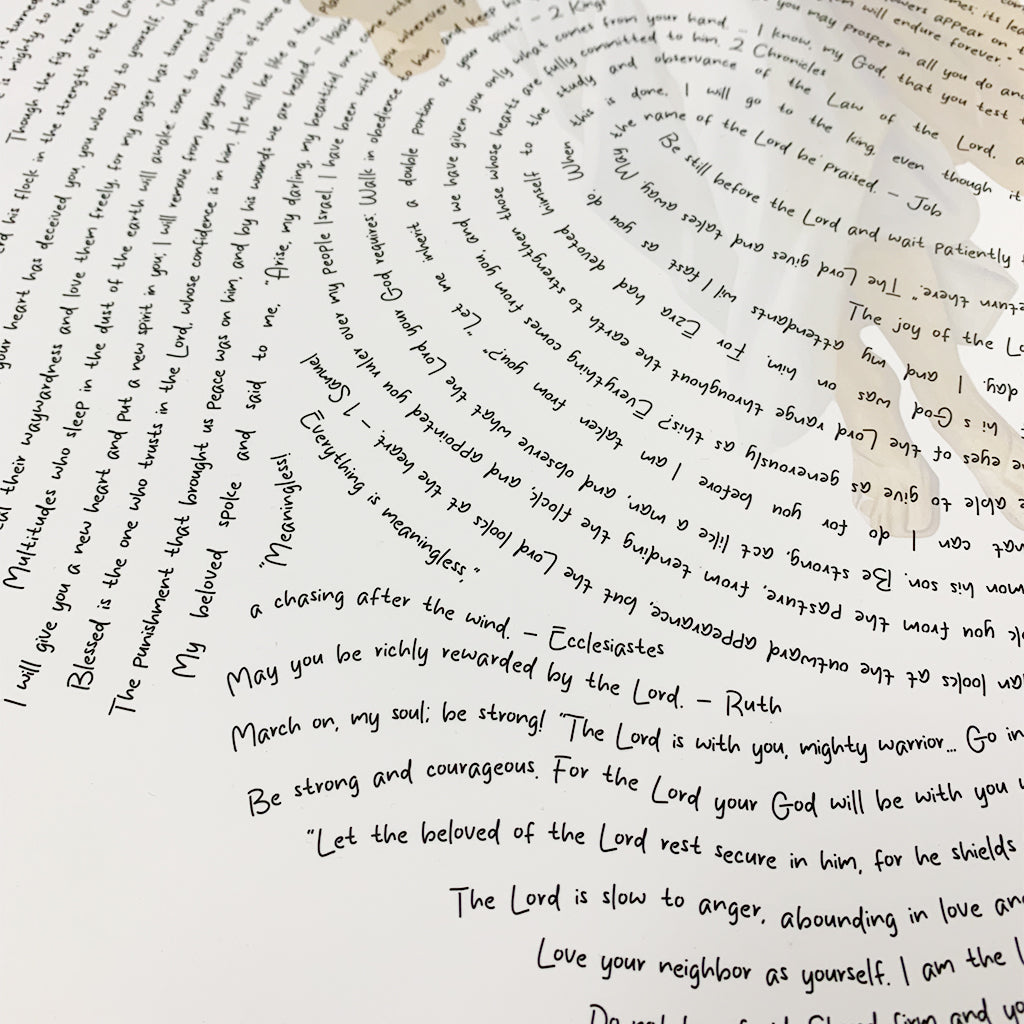 "Meaningless!
Everything is meaningless,"
a chasing after the wind. – Ecclesiastes
May you be richly rewarded by the Lord. – Ruth
March on, my soul; be strong! "The Lord is with you, mighty warrior... Go in
Be strong and courageous. For the Lord your God will be with you
"Let the beloved of the Lord rest secure in him, for he shields
The Lord is slow to anger, abounding in love and
Love your neighbor as yourself. I am the
My beloved spoke and said to me, "Arise, my darling, my beautiful one,
The punishment that brought us peace was on him, and by his wounds we are healed – Isaiah
Blessed is the one who trusts in the Lord, whose confidence is in him. He will be like a tree
I will give you a new heart and put a new spirit in you; I will remove from you your heart of stone
Multitudes who sleep in the dust of the earth will awake: some to everlasting
their waywardness and love them freely, for my anger has turned away
your heart has deceived you, you who say to yourself,
his flock in the strength of the
Though the fig tree does
looks at the outward appearance, but the Lord looks at the heart." – 1 Samuel
you from the pasture, from tending the flock, and appointed you ruler over my people Israel. I have been with you wherever
his son. Be strong, act like a man, and observe what the Lord your God requires: Walk in obedience to him, and keep his
can I do for you before I am taken from you?" "Let me inherit a double portion of your spirit," – 2 Kings
able to give as generously as this? Everything comes from you, and we have given you only what comes from your hand. – I know, my God, that you test
eyes of the Lord range throughout the earth to strengthen those whose hearts are fully committed to him. 2 Chronicles
his God was on him. For Ezra had devoted himself to the study and observance of the Law of the Lord,
day. I and my attendants will fast as you do. When this is done, I will go to the king, even though it
return there." The Lord gives and takes away May the name of the Lord be praised – Job
Be still before the Lord and wait patiently
The joy of the
you may prosper in all you do and
will endure forever."
flowers appear on